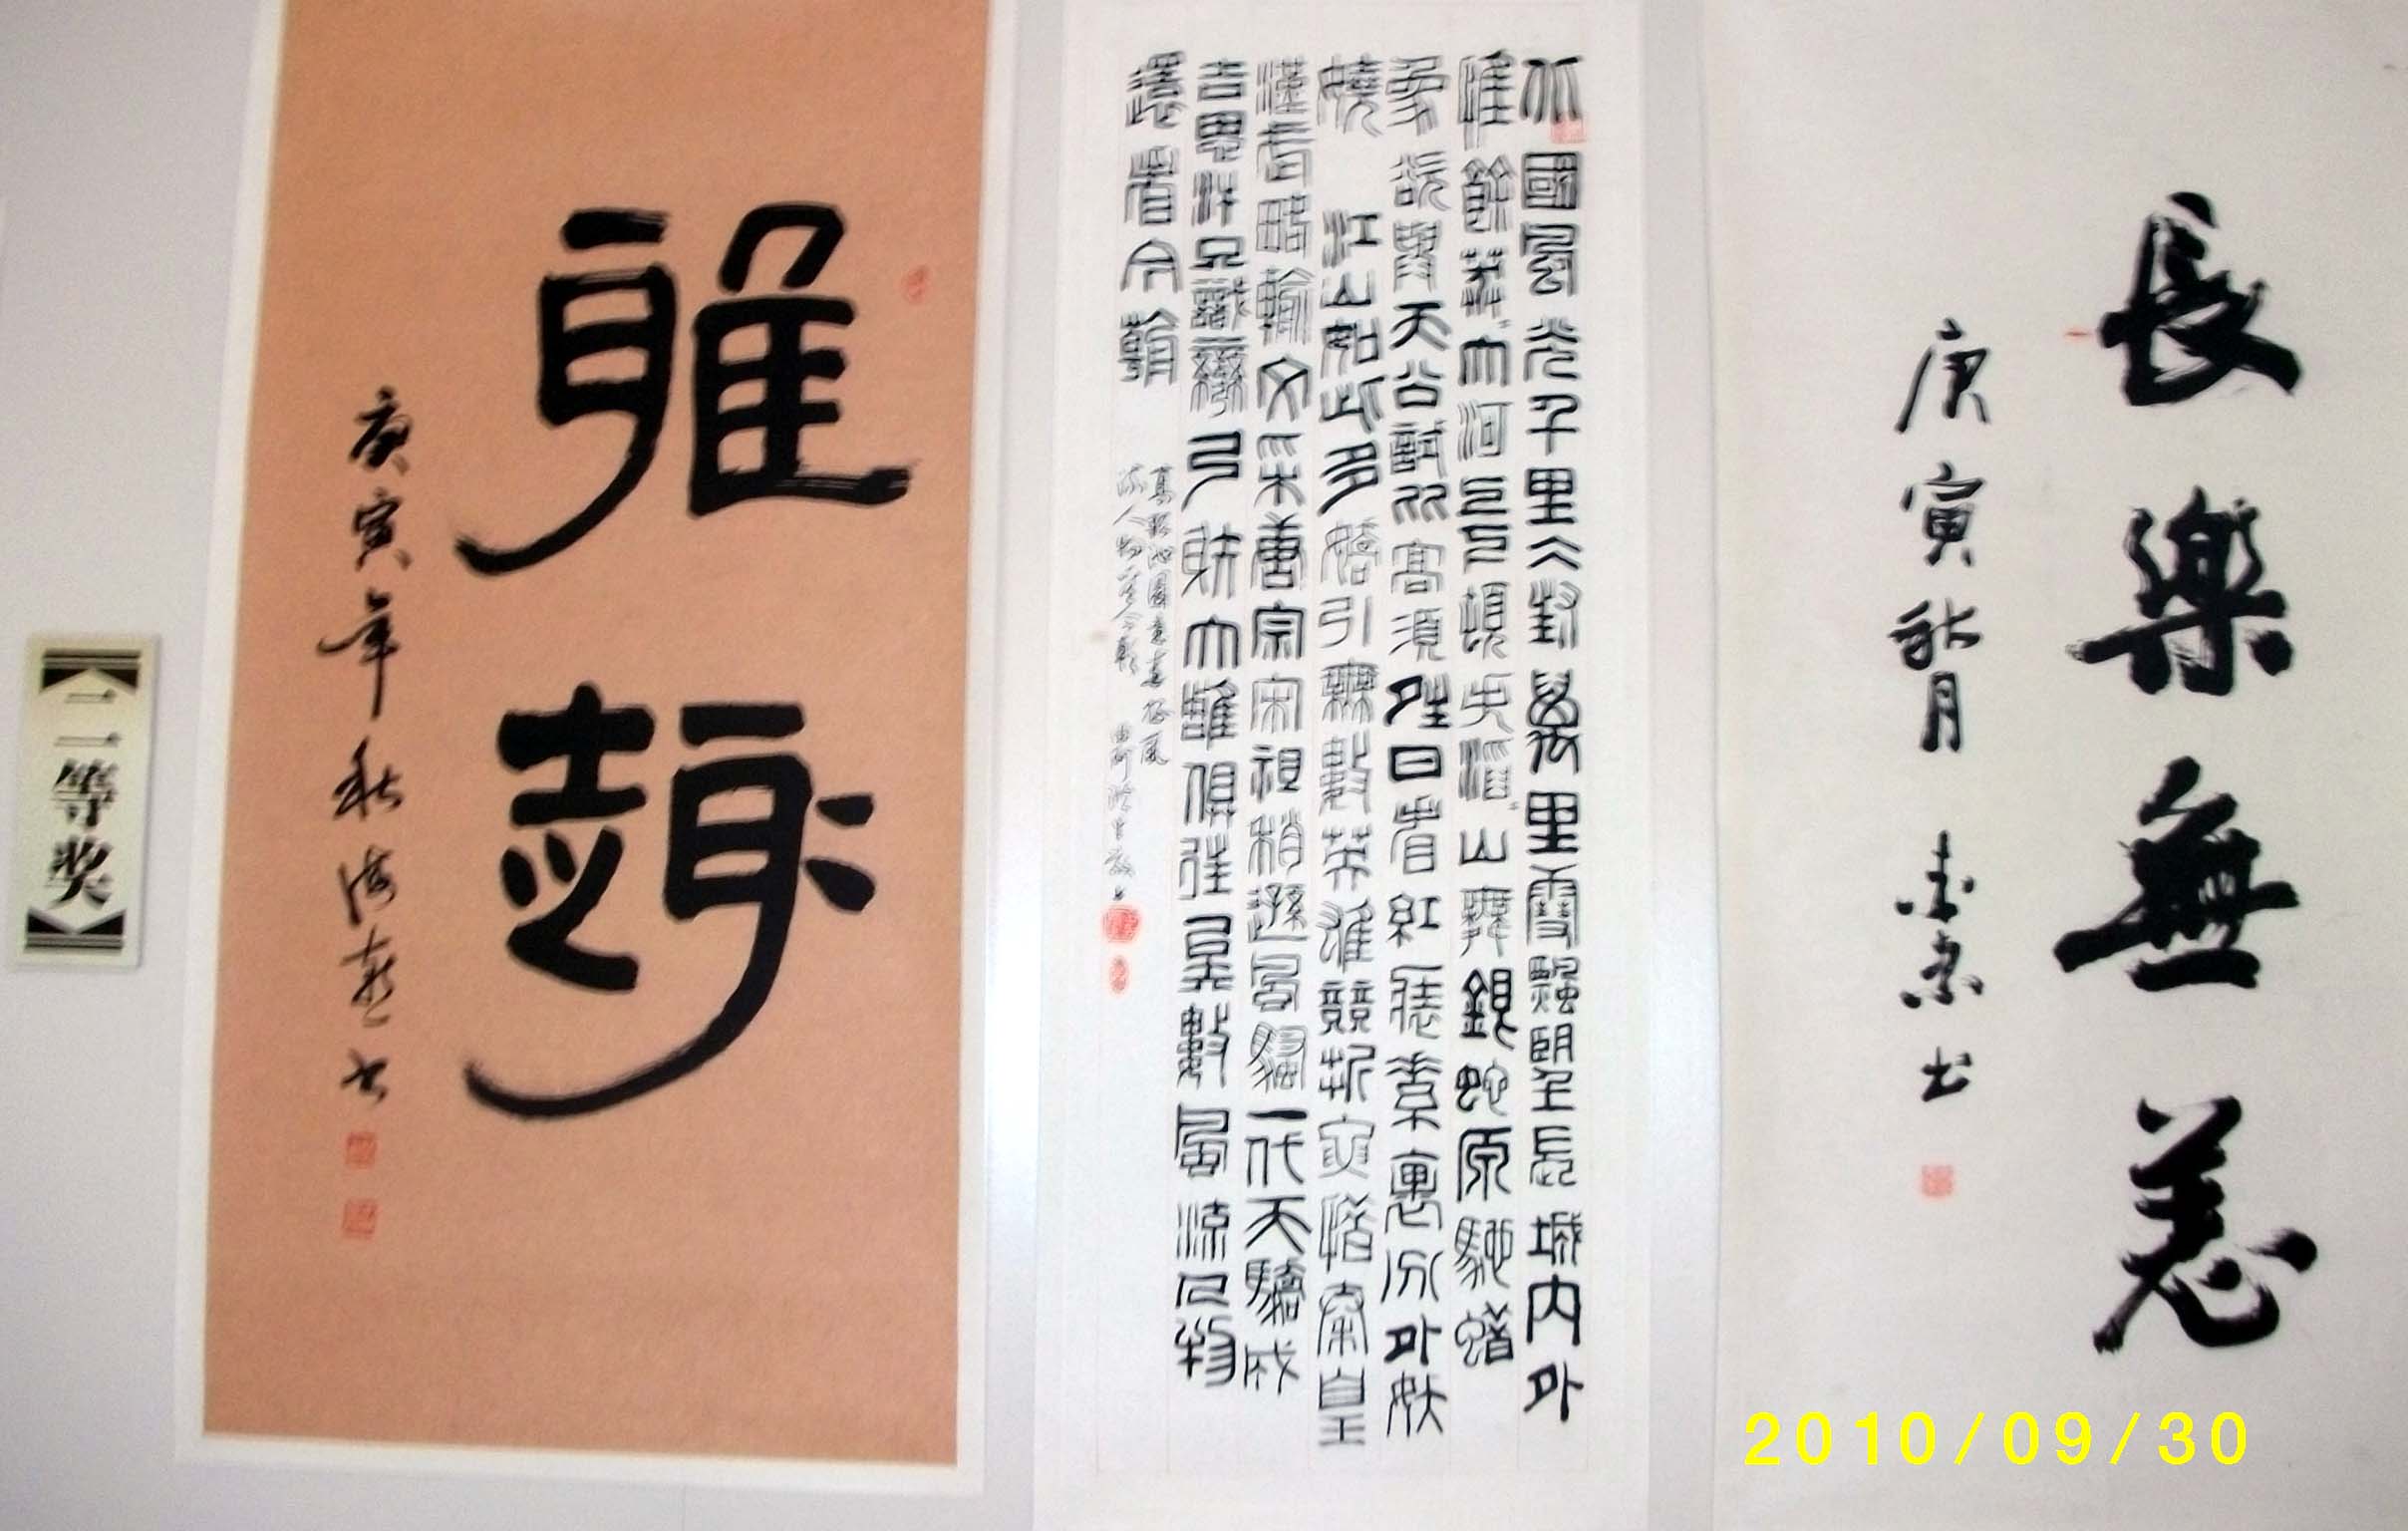 長樂無恙
庚寅秋月 书
北國風光千里冰封萬里雪飄望長城內外
惟餘莽〻大河上下頓失滔〻山舞銀蛇原馳蠟
象欲與天公試比高須晴日看紅裝素裹分外妖
嬈 江山如此多嬌引無數英雄競折腰惜秦皇
漢武略輸文采唐宗宋祖稍遜風騷一代天驕成
吉思汗只識彎弓射大雕俱往矣數風流人物
還看今朝
雅趣
庚寅年秋海 书
二等奖
2010/09/30